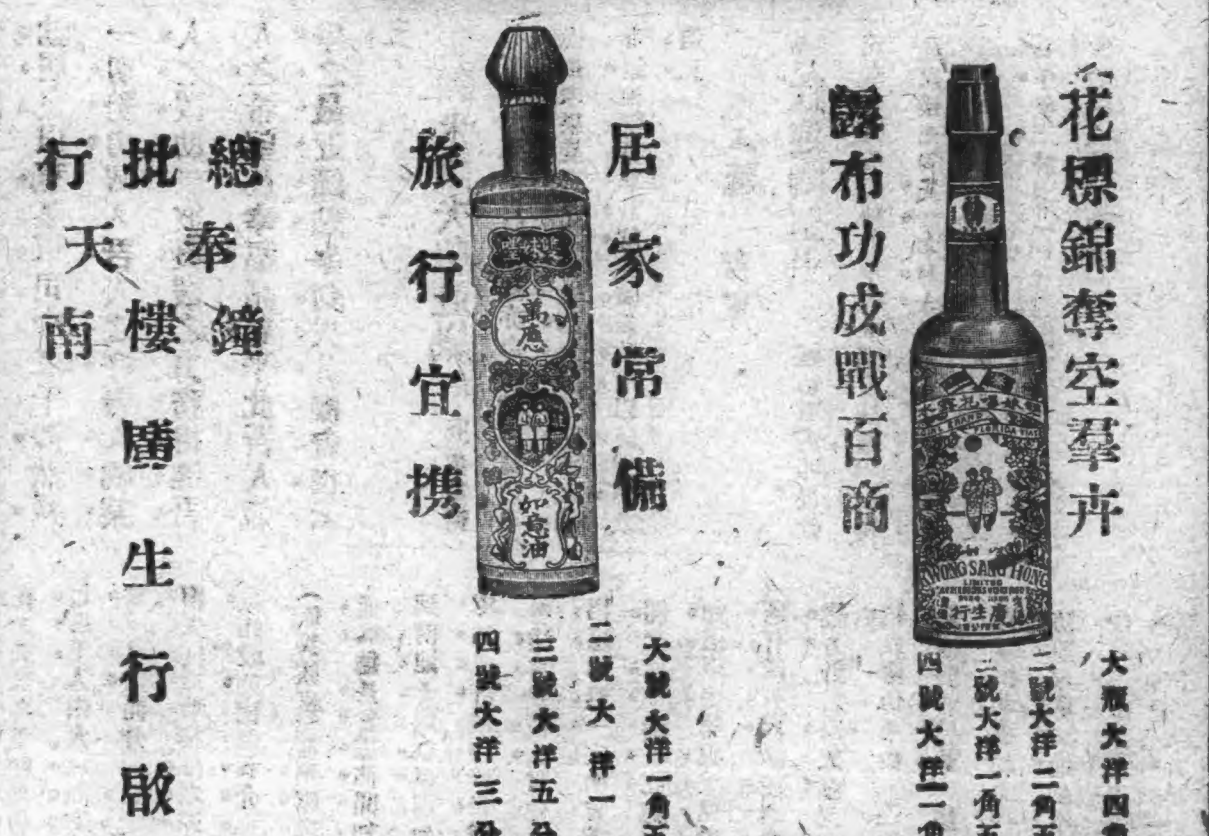 花標錦奪空羣卉
露布功成戰百商
花露水
FLORIDA
KWONG SANG HONG
LIMITED
廣生行
大瓶大洋四
二號大洋二角五
三號大洋一角五
四號大洋一角
居家常備
旅行宜携
雙妹嘜
萬應
如意油
大號大洋一角五
二號大洋一
三號大洋五分
四號大洋三分
總批行
奉天
鐘樓南
廣生行啟